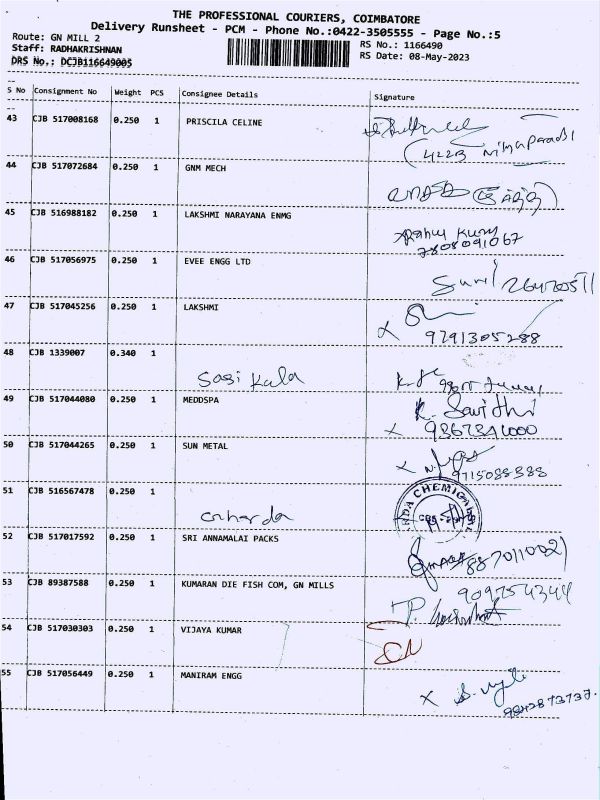 THE PROFESSIONAL COURIERS, COIMBATORE
Delivery Runsheet - PCM - Phone No.:0422-3505555 - Page No.:5
Route: GN MILL 2
RS No.: 1166490
Staff: RADHAKRISHNAN
RS Date: 08-May-2023
DRS No.: DCJB116649005
S No Consignment No Weight PCS Consignee Details Signature
43 CJB 517008168 0.250 1 PRISCILA CELINE
44 CJB 517072684 0.250 1 GNM MECH
45 CJB 516988182 0.250 1 LAKSHMI NARAYANA ENMG
Rahul Kumar
7808091067
46 CJB 517056975 0.250 1 EVEE ENGG LTD
Sunil
47 CJB 517045256 0.250 1 LAKSHMI
X 9791305288
48 CJB 1339007 0.340 1
Sasi Kala
49 CJB 517044080 0.250 1 MEDDSPA
K. Savithi
X
50 CJB 517044265 0.250 1 SUN METAL
X 9715088388
51 CJB 516567478 0.250 1
CHEMI
52 CJB 517017592 0.250 1 SRI ANNAMALAI PACKS
53 CJB 89387588 0.250 1 KUMARAN DIE FISH COM, GN MILLS
9097544344
54 CJB 517030303 0.250 1 VIJAYA KUMAR
55 CJB 517056449 0.250 1 MANIRAM ENGG
X 9842873737.